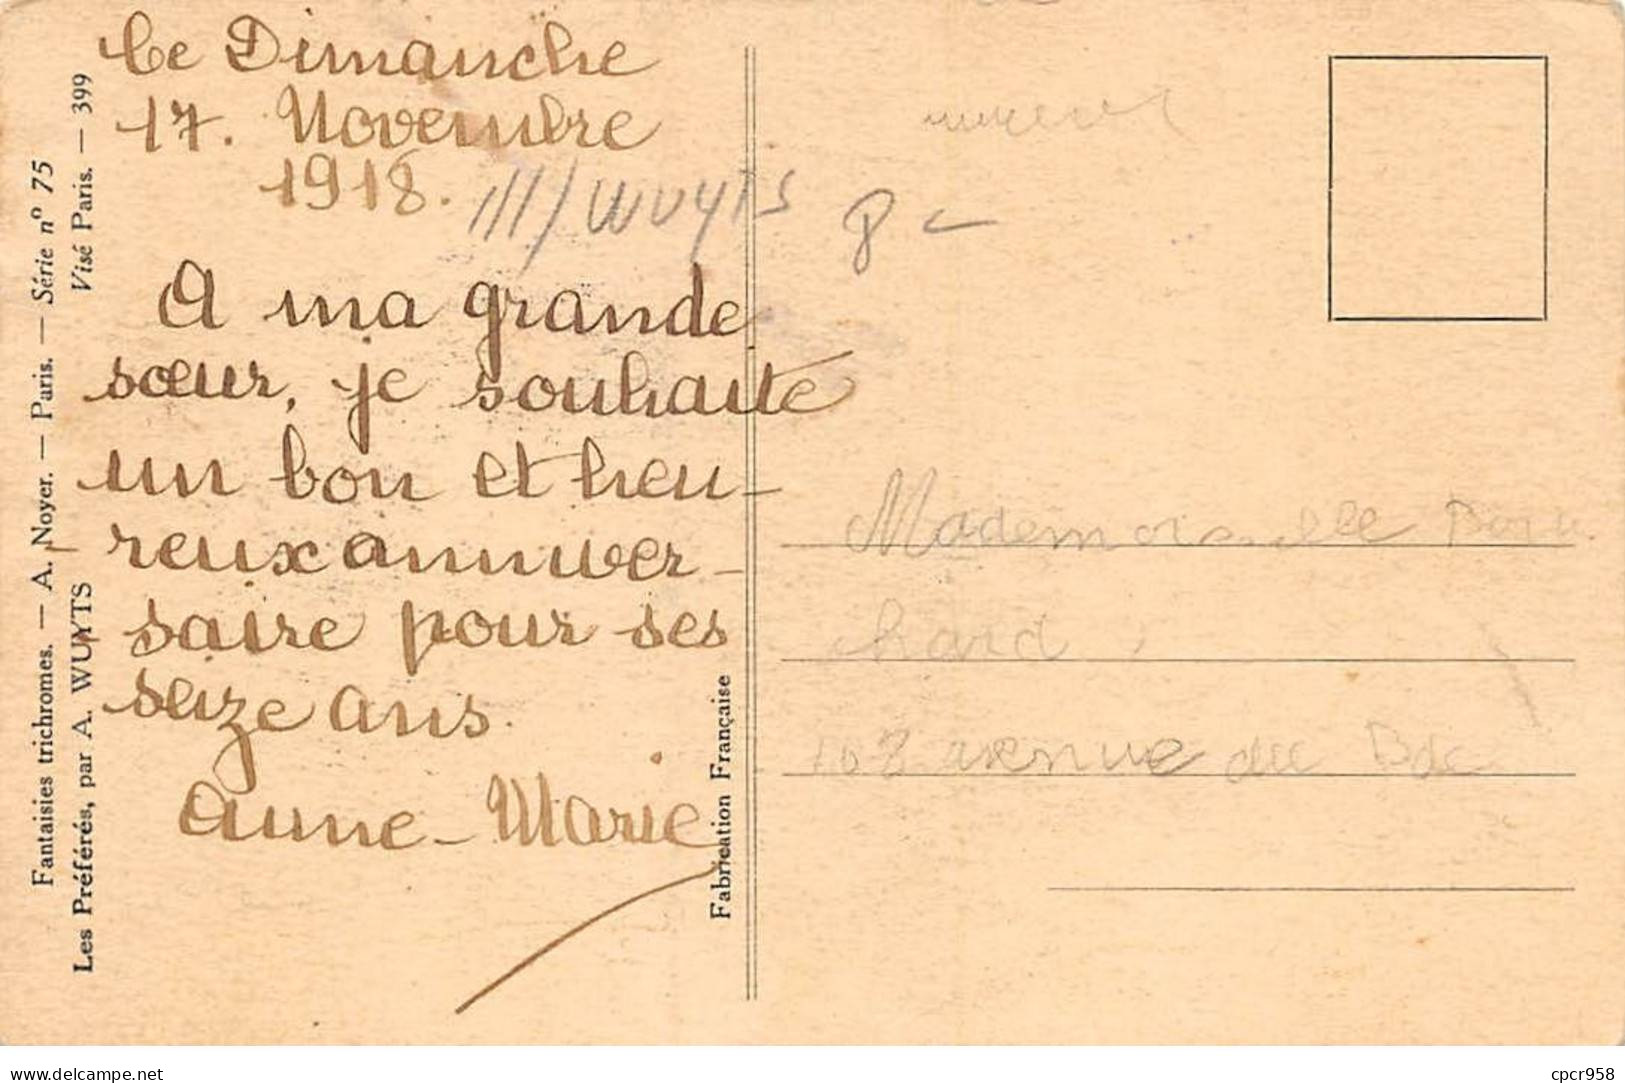 Fantaisies trichromes. — A. Noyer. — Paris. — Série n° 75
Les Préférés, par A. WUYTS
Visé Paris. — 399
Ce Dimanche
17. Novembre
1918.
III/WUYTS
8
A ma grande
sœur, je souhaite
un bon et heu-
reux anniver-
saire pour ses
seize ans.
Anne-Marie
Fabrication Française
Mademoiselle
hard
avenue du
delcampe.net
cpcr958